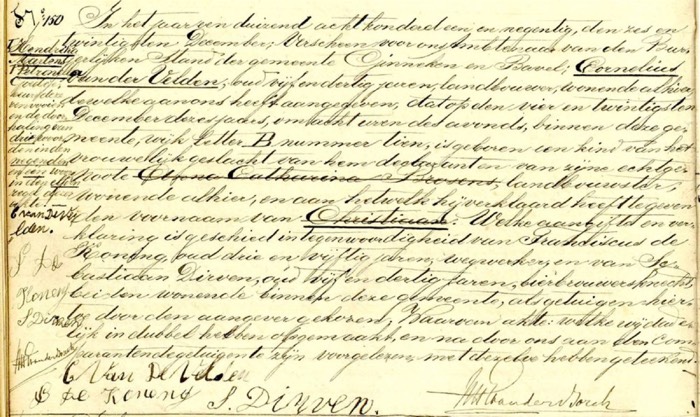 No. 150
In het jaar een duizend acht honderd een en negentig, den zes en
twintigsten December, Verscheen voor ons ambtenaar van den Bur-
gerlijken Stand der gemeente Ginneken en Bavel; Cornelius
van der Velden, oud vijf en dertig jaren, landbouwer, wonende alhier,
dewelke aan ons heeft aangegeven, dat op den vier en twintigsten
December dezes jaars, om acht uren des avonds, binnen deze ge-
meente, wijk letter B nummer tien, is geboren een kind van het
vrouwelijk geslacht van hem declarant en van zijne echtge-
noote Catharina landbouwster,
wonende alhier, en aan hetwelk hij verklaard heeft te geven
den voornaam van Christiaan. Welke aangifte en ver-
klaring is geschied in tegenwoordigheid van Franciscus de
Koning, oud drie en vijftig jaren, wegwerker, en van Se-
bastiaan Dirven, oud vijf en dertig jaren, bierbrouwersknecht,
beiden wonende binnen deze gemeente, als getuigen hier-
toe door den aangever gekozen; Waarvan akte: welke wij daade-
lijk in dubbel hebben opgemaakt, en na door ons aan den Com-
parant en de getuigen te zijn voorgelezen, met dezelve hebben geteekend.
C Van De Velden
De Koning S. Dirven
Hendrika
E van D Velden.
S. De
Koning
S. Dirven